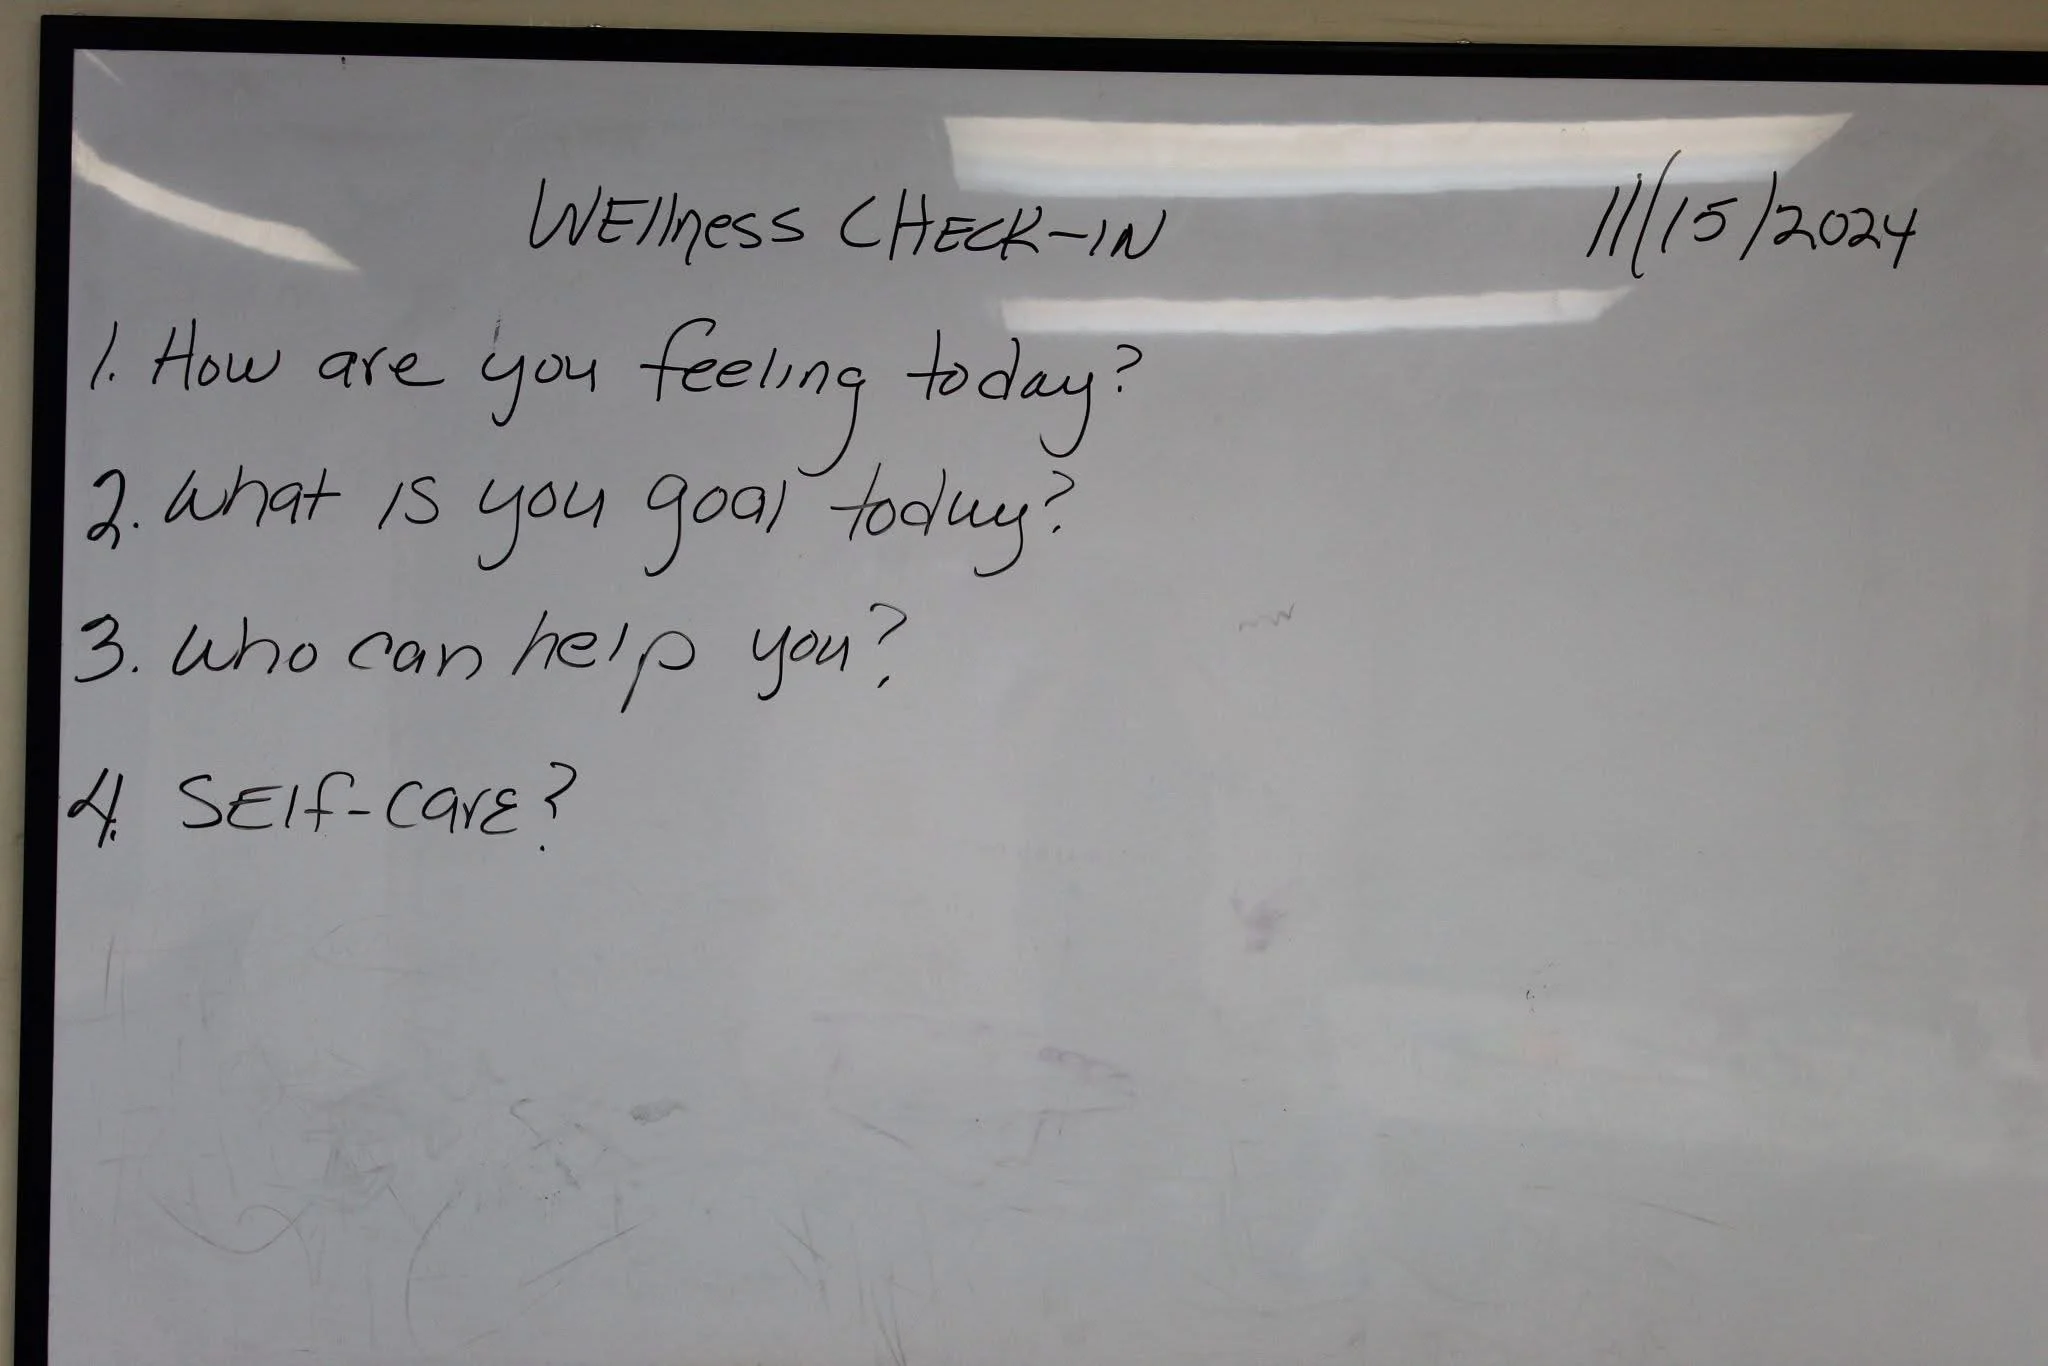 WEllness CHECK-IN 11/15/2024
1. How are you feeling today?
2. What is you goal today?
3. Who can help you?
4. SElf-care?